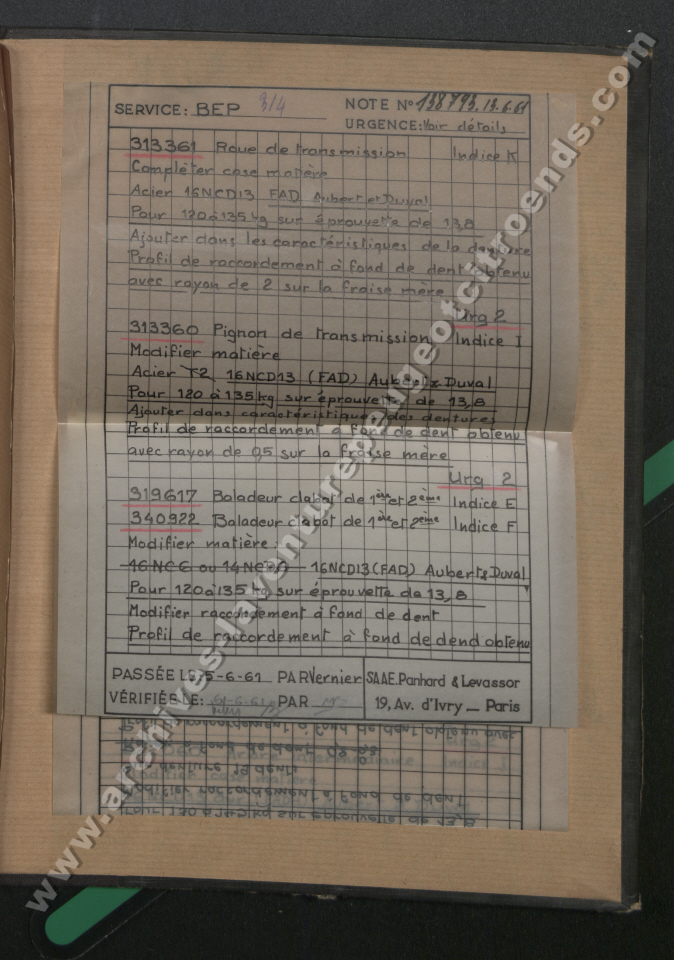 SERVICE: BEP 3/4 NOTE N° 138793. 13.6.61
URGENCE: Voir détails
313361 Roue de transmission Indice K
Compléter case matière
Acier 16NCD13 FAD Aubert et Duval
Pour 120 à 135 kg sur éprouvette de 13,8
Ajouter dans les caractéristiques de la denture
Profil de raccordement à fond de dent obtenu
avec rayon de 2 sur la fraise mère
Urg 2
313360 Pignon de transmission Indice I
Modifier matière
Acier T2 16NCD13 (FAD) Aubert & Duval
Pour 120 à 135 kg sur éprouvette de 13,8
Ajouter dans caractéristiques des dentures
Profil de raccordement à fond de dent obtenu
avec rayon de 0,5 sur la fraise mère
Urg 2
319617 Baladeur clabot de 1ère et 2ème Indice E
340922 Baladeur clabot de 1ère et 2ème Indice F
Modifier matière:
16NC6 ou 14NC 16NCD13 (FAD) Aubert & Duval
Pour 120 à 135 kg sur éprouvette de 13,8
Modifier raccordement à fond de dent
Profil de raccordement à fond de dend obtenu
PASSÉE LE: 5-6-61 PAR Vernier SAAE. Panhard & Levassor
VÉRIFIÉE LE: PAR 19, Av. d'Ivry _ Paris
Profil raccordement à fond de dent obtenu avec
denture 19 dents
Modifier raccordement à fond de dent
Pour 130 à 145 kg sur éprouvette de 13,8
www.archives-laventurepeugeotcitroends.com